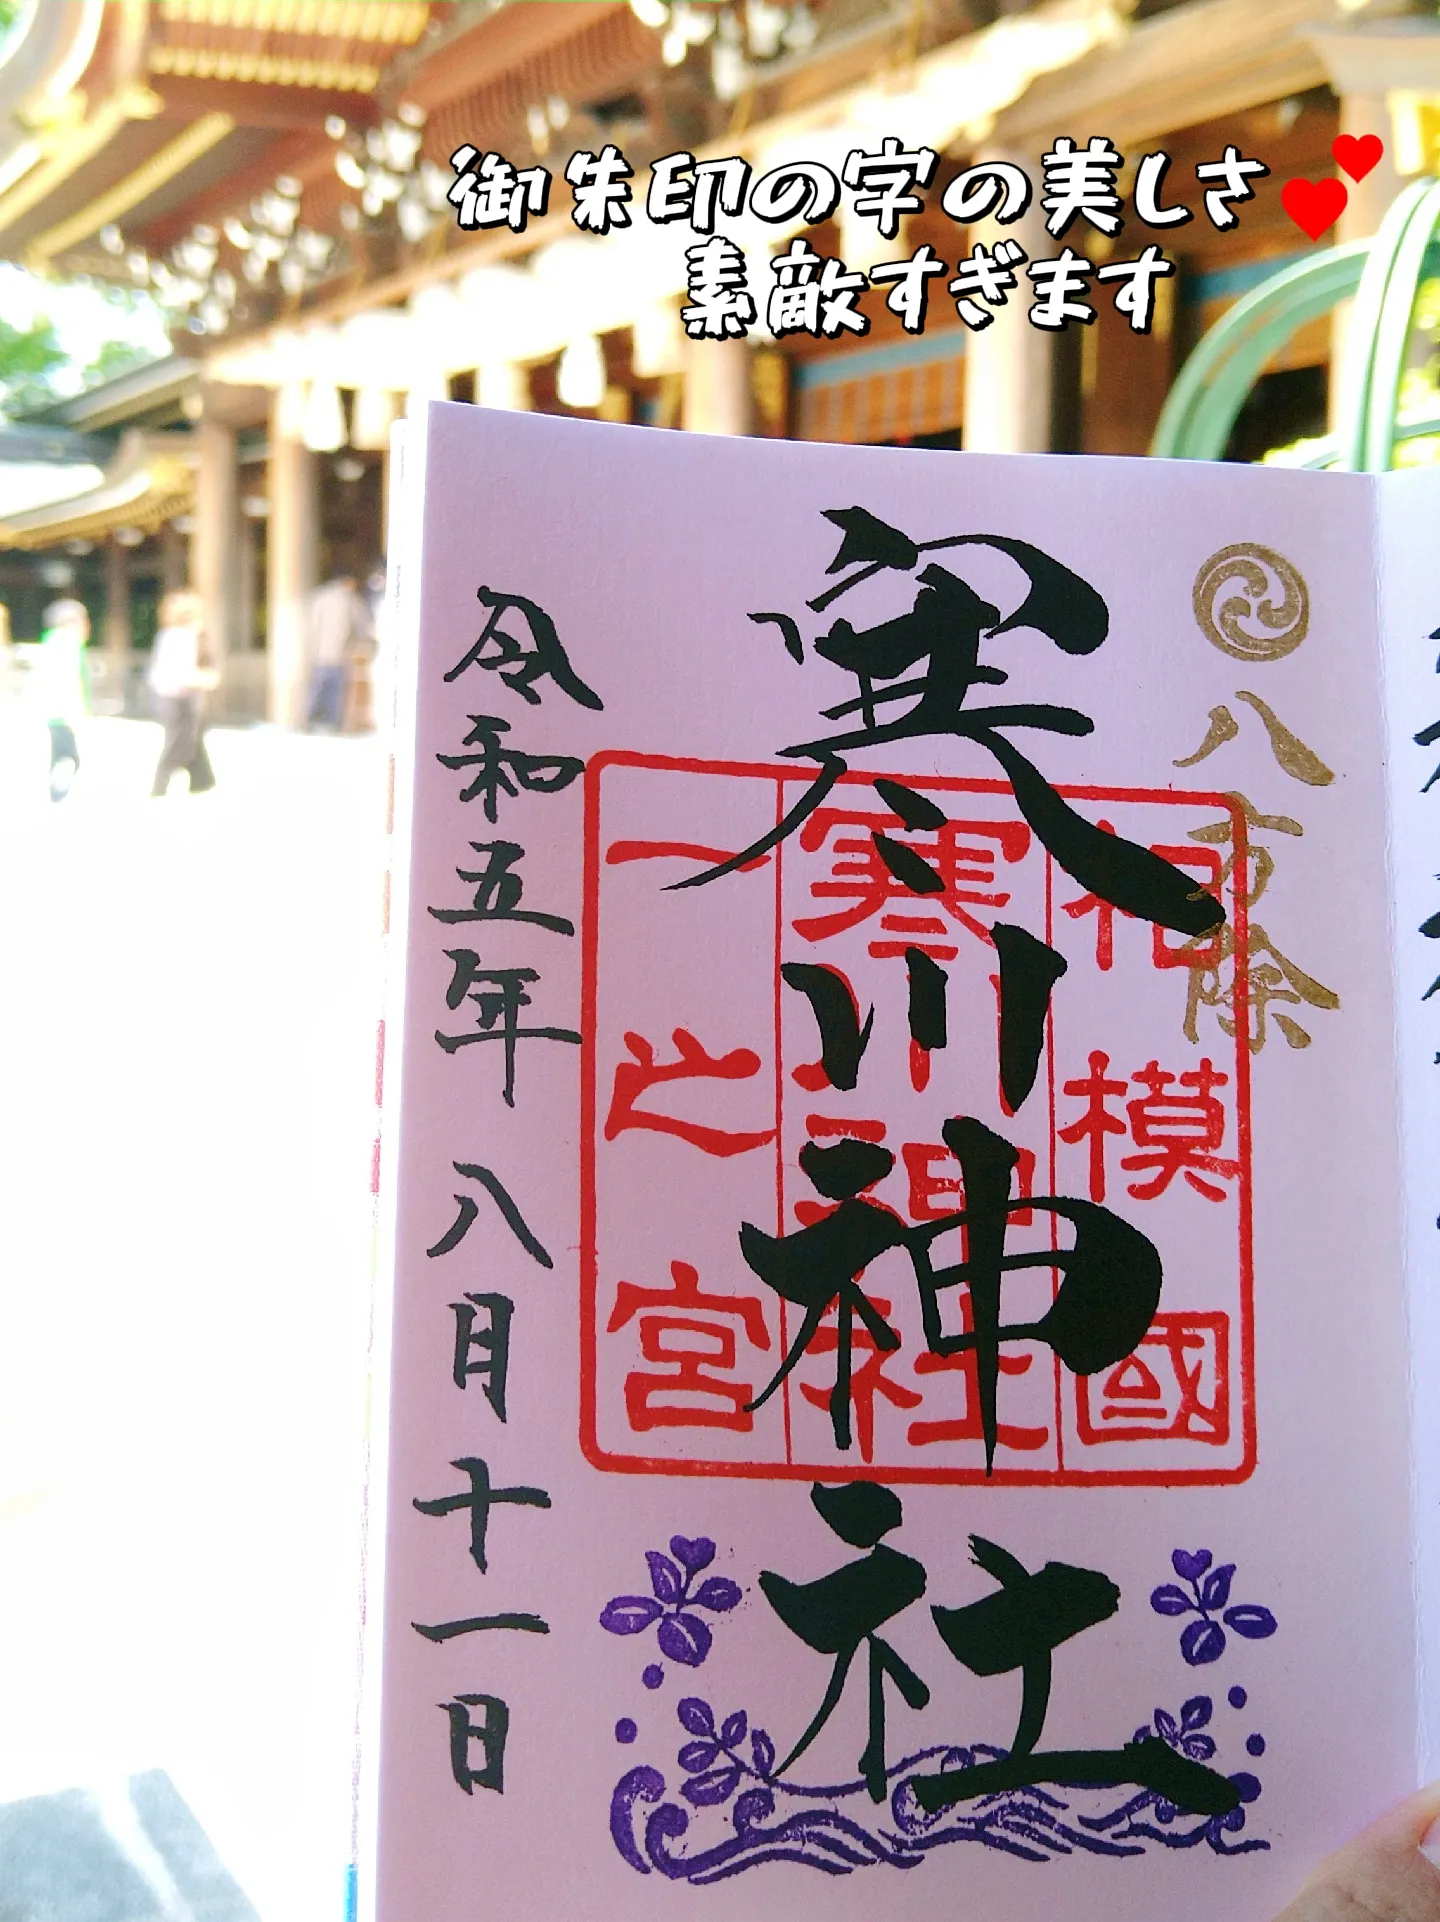 御朱印の字の美しさ💕
素敵すぎます
八方除
相模國
寒川神社
一之宮
寒川神社
令和五年 八月十一日